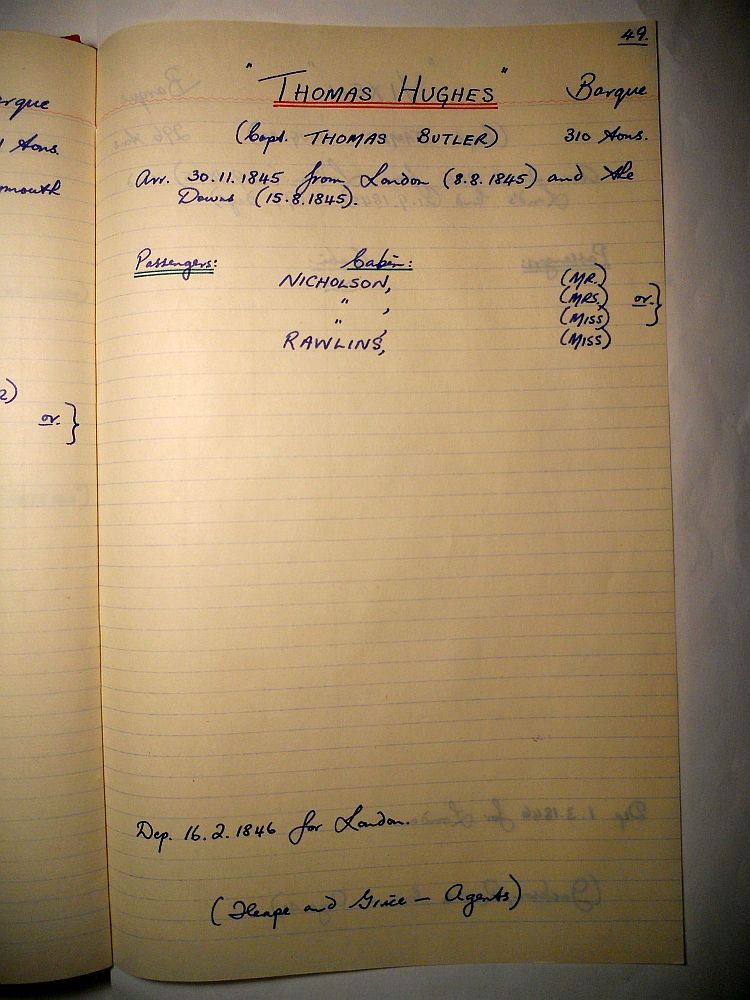 49.
"THOMAS HUGHES" Barque
(Capt. THOMAS BUTLER) 310 tons.
Arr. 30.11.1845 from London (8.8.1845) and the
Downs (15.8.1845).
Passengers: Cabin:
NICHOLSON, (MR.)
" , (MRS.) or. }
" , (MISS)
RAWLINS, (MISS)
Dep. 16.2.1846 for London.
(Heape and Grice — Agents)
or. }